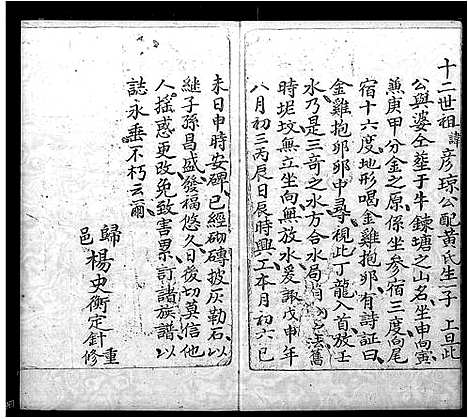 十二世祖諱彦琼公配黄氏生一子上旦此
公與婆仝塟于牛鍊塘之山名坐申向寅
兼庚甲分金之原係坐参宿三度向尾
宿十六度地形喝金雞抱卵有詩証曰
金雞抱卵卯中尋視此丁龍首放壬
水乃是三奇之水方合水局法舊
時坭坟無立坐向無放水爰諏戊申年
八月初三丙辰日辰時興工本月初六己
未日申時安碑已經砌磚披灰勒石以
継子孫昌盛發福悠久日後切莫信他
人揺惑更改免致害累訂諸族譜以
誌永垂不朽云爾
歸邑楊史衡定針重修